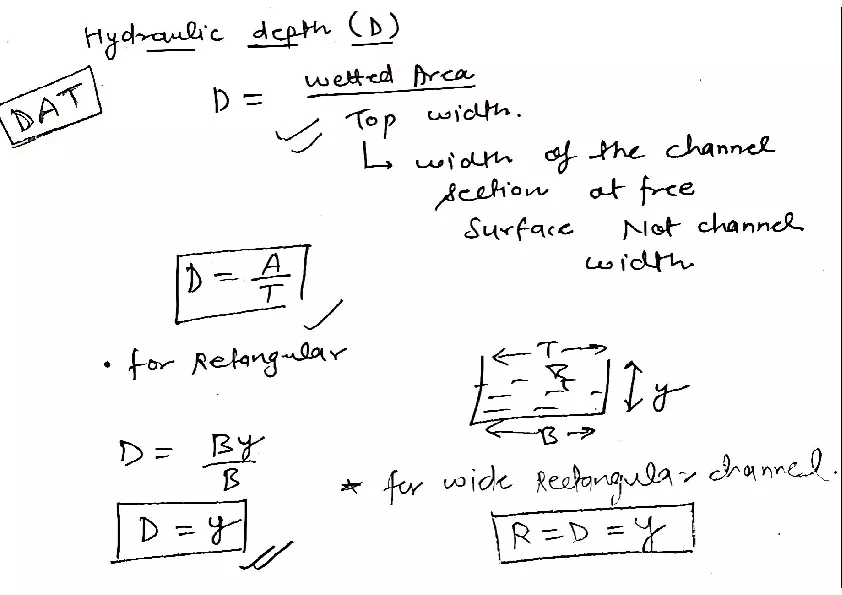 Hydraulic depth (D)
DAT
D = Wetted Area
Top width.
↳ width of the channel
section at free
Surface Not channel
width
D = A
T
• for Retangular
T
y
B
D = By
B
D = y
* for wide Rectangular channel.
R = D = y